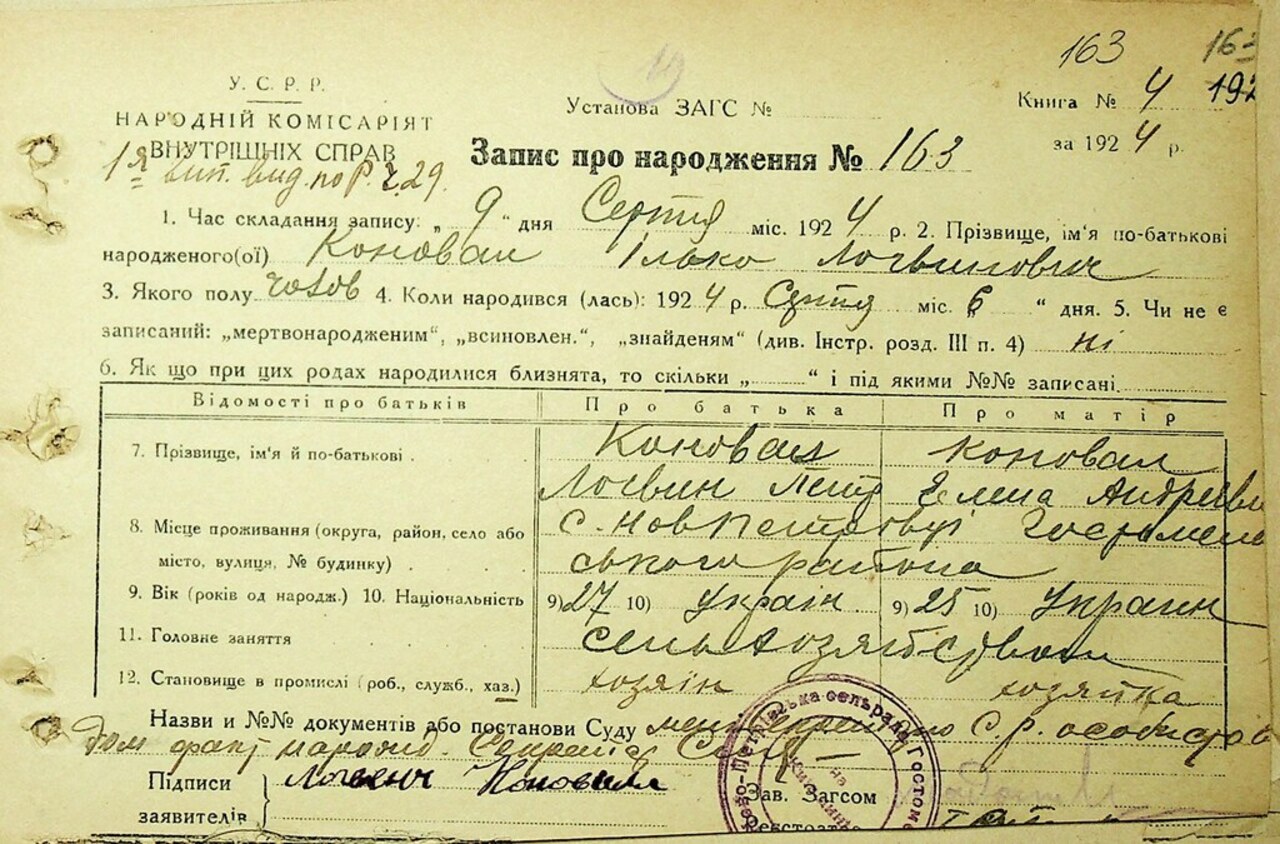 163 163
У. С. Р. Р.
Установа ЗАГС №
Книга № 4 192
НАРОДНІЙ КОМІСАРІЯТ
ВНУТРІШНІХ СПРАВ
Запис про народження № 163
за 1924 р.
1я вип. вид. по Р. 29.
1. Час складання запису: „ 9 “ дня Серпня міс. 1924 р. 2. Прізвище, ім'я по-батькові
народженого(ої) Коновал Ілько Логвинович
3. Якого полу чолов 4. Коли народився (лась): 1924 р. Серпня міс. „ 6 “ дня. 5. Чи не є
записаний: „мертвонародженим“, „всиновлен.“, „знайденям“ (див. Інстр. розд. III п. 4) ні
6. Як що при цих родах народилися близнята, то скільки „ “ і під якими №№ записані.
Відомості про батьків Про батька Про матір
7. Прізвище, ім'я й по-батькові . Коновал Коновал
Логвин Петр Елена Андреевн
8. Місце проживання (округа, район, село або с. Нов Петровці Гостомель
місто, вулиця, № будинку) . . ського района
9. Вік (років од народж.) 10. Національність 9) 27 10) Украін 9) 25 10) Украин
11. Головне заняття сельхозяйством
12. Становище в промислі (роб., служб., хаз.) хозяін хозяйка
Назви и №№ документів або постанови Суду С.р. особисто
факт народж. Секретар
Підписи Логвин Коновал
заявителів
Зав. Загсом
Реєстратор